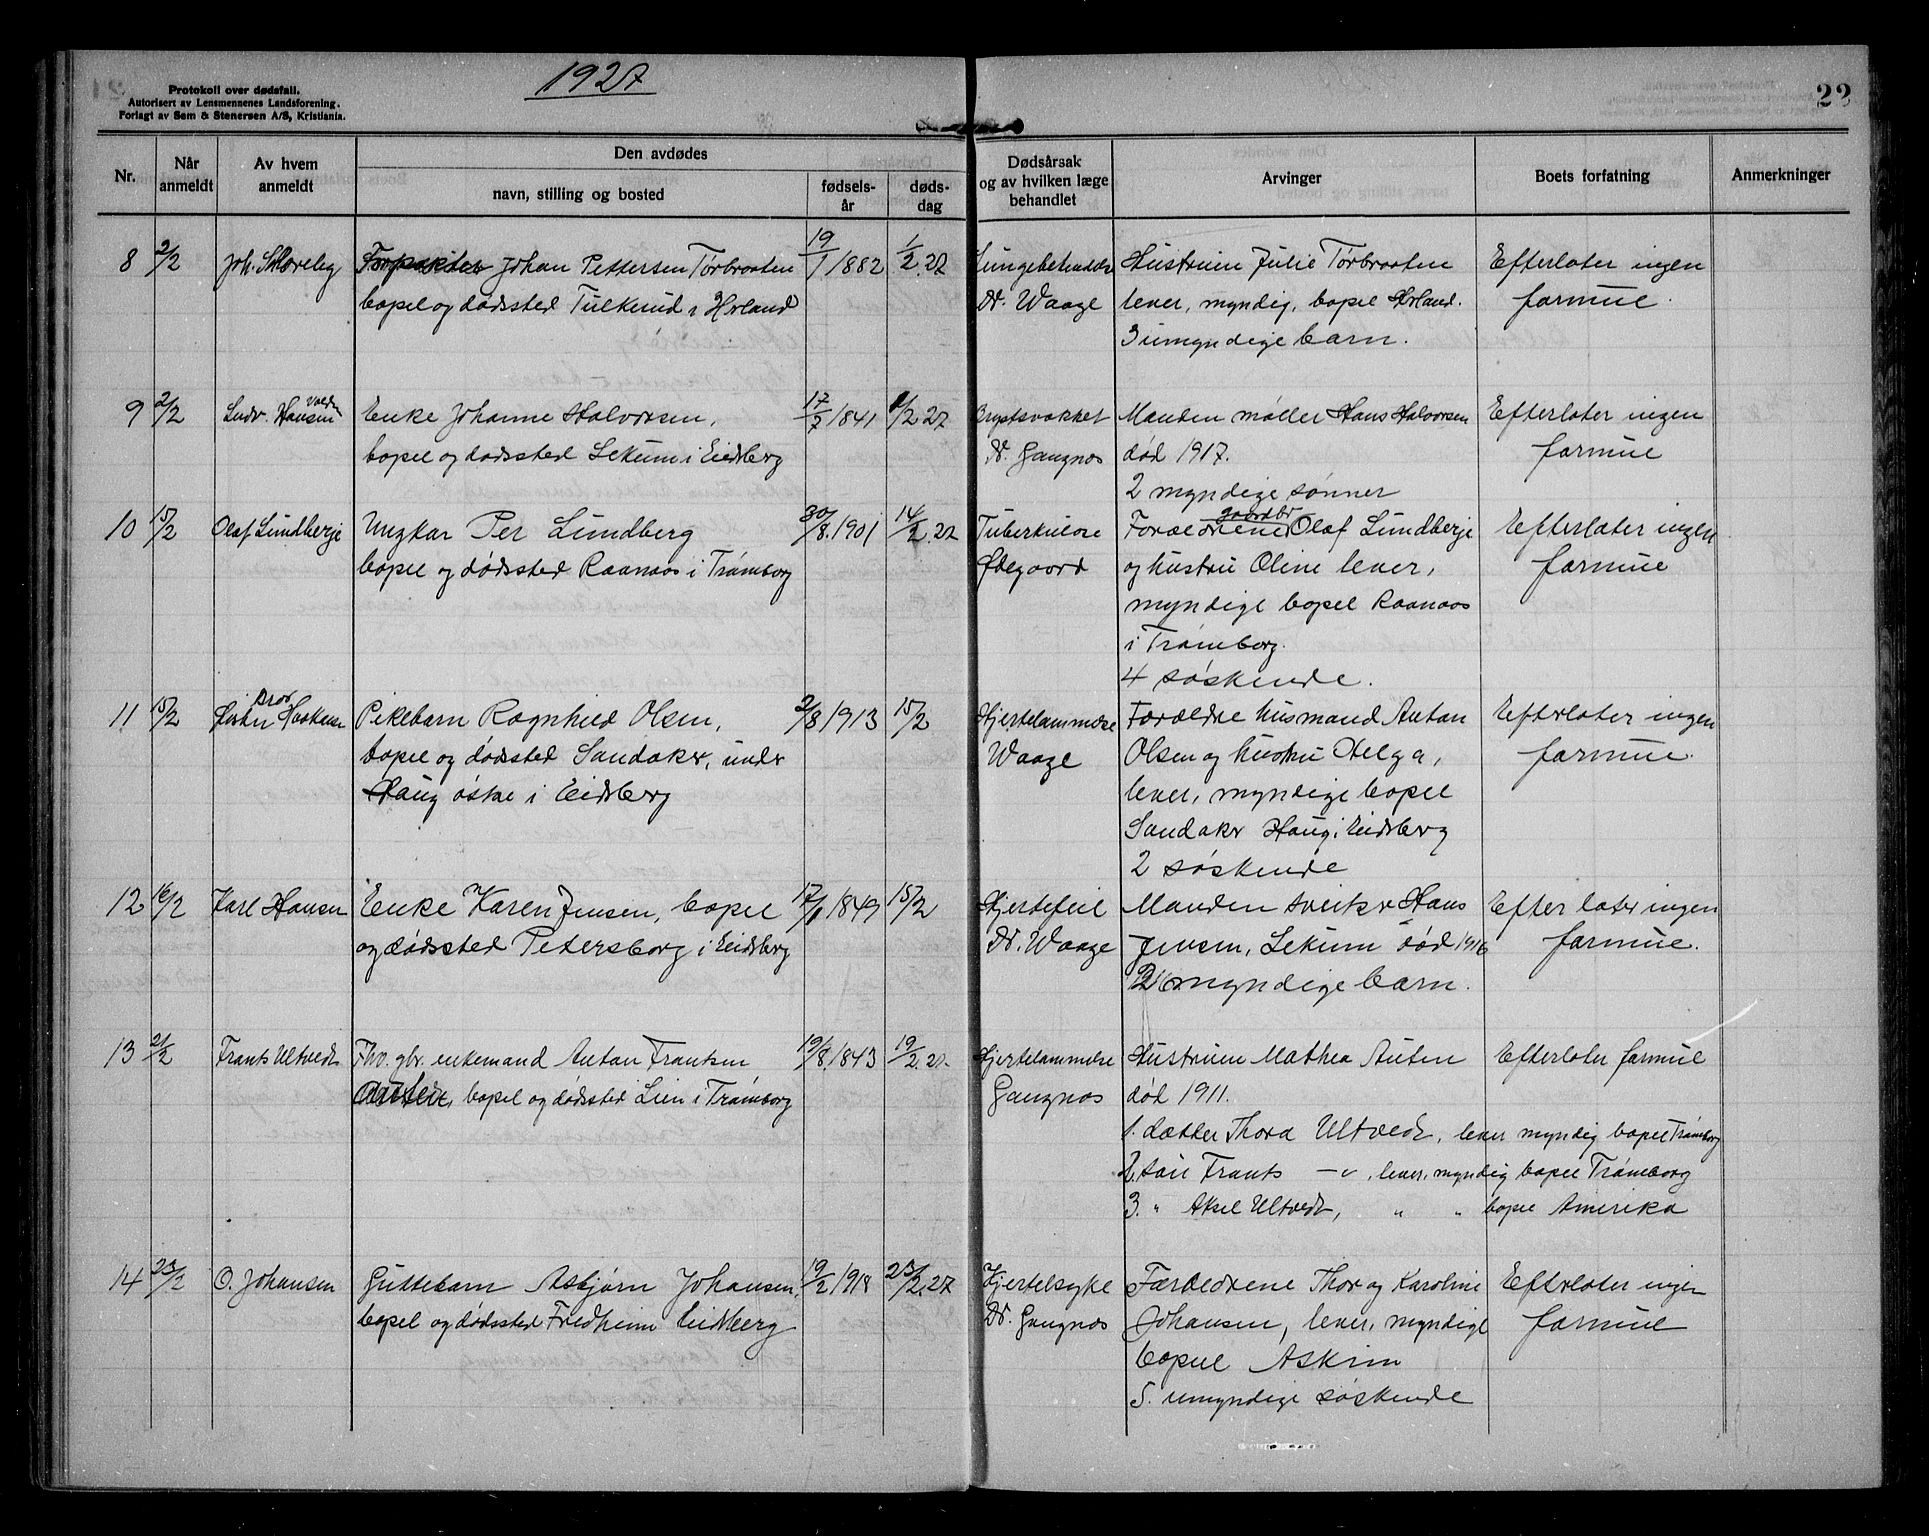 1927
Protokoll over dødsfall.
Autorisert av Lensmennenes Landsforening.
Forlagt av Sem & Stenersen A/S, Kristiania.
22
Nr.
Når anmeldt
Av hvem anmeldt
Den avdødes
navn, stilling og bosted
fødselsår
dødsdag
Dødsårsak og av hvilken læge behandlet
Arvinger
Boets forfatning
Anmerkninger
8 2/2 Joh. Johan Pettersen Torbraaten 19/1 1882 1/2.27
bopel og dødssted Tulkerud i Hærland
Dr. Waage
Hustruen Julie Torbraaten
lever, myndig, bopel Hærland.
3 umyndige barn.
Efterlater ingen
formue.
9 2/2 Ludv. Hansen Enke Johanne Halvorsen, 17/7 1841 1/2 27
bopel og dødssted Lekum i Eidsberg
Dr. Gangnæs
Manden møller Hans Halvorsen
død 1917.
2 myndige sønner
Efterlater ingen
formue
10 15/2 Olaf Lundberje Ungkar Per Lundberg 30/8.1901 14/2.27
bopel og dødssted Raanaas i Trømborg
Tuberkulose
Ødegaard
Forældrene gaardbr Olaf Lundberje
og hustru Oline lever,
myndige bopel Raanaas
i Trømborg.
4 søskende.
Efterlater ingen
formue
11 15/2 Bror Haakens Pikebarn Ragnhild Olsen, 2/8 1913 15/2
bopel og dødssted Sandaker, under
Haug østre i Eidsberg
Hjertelammelse
Waage
Forældre husmand Anton
Olsen og hustru Helga,
lever, myndige bopel
Sandaker Haug i Eidsberg
2 søskende
Efterlater ingen
formue.
12 16/2 Karl Hansen Enke Karen Jensen, bopel 17/1 1849 15/2
og dødssted Petersborg i Eidsberg
Hjertefeil
Dr. Waage
Manden Hans
Jensen, Lekum død 1916
myndige barn.
Efterlater ingen
formue.
13 21/2 Frants Ultvedt Fhv. gbr. enkemand Anton Frantsen 19/8.1843 19/2.27.
bopel og dødssted Lien i Trømborg
Hjertelammelse
Gangnæs
Hustruen Mathea Auten
død 1911.
1. datter Thora Ultvedt, lever myndig bopel Trømborg
2. søn Frants —"—, lever, myndig bopel Trømborg
3. " Aksel Ultvedt, " " bopel Amerika
Efterlater formue
14 23/2 O. Johansen Guttebarn Asbjørn Johansen, 19/2 1918 23/2.27
bopel og dødssted Fredheim Eidsberg
Hjertesyke
Dr. Gangnæs
Forældrene Thor og Karoline
Johansen, lever, myndige
bopel Askim
5. umyndige søskende
Efterlater ingen
formue